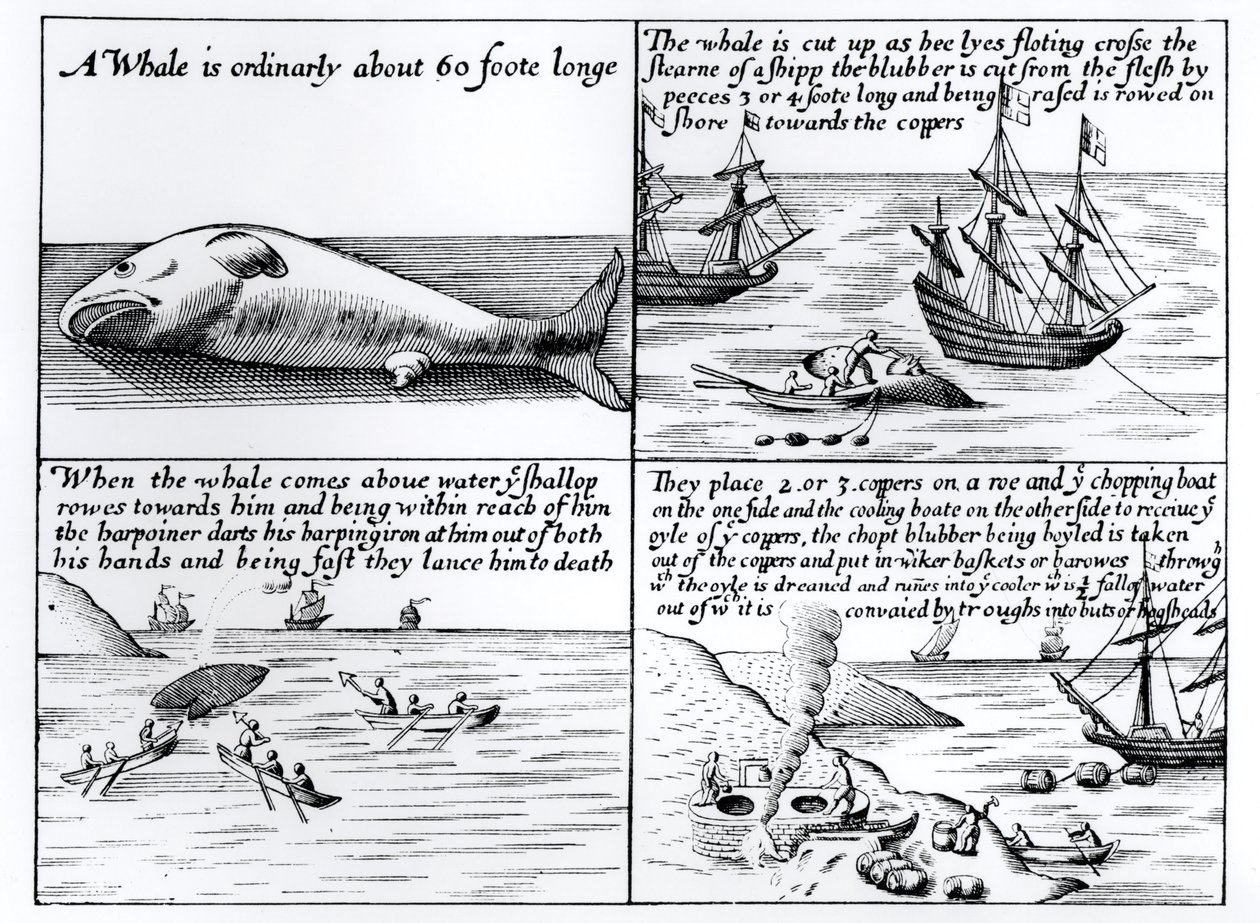 A Whale is ordinarly about 60 foote longe
The whale is cut up as hee lyes floting crosse the
stearne of a shipp the blubber is cut from the flesh by
peeces 3 or 4 foote long and being rased is rowed on
shore towards the coppers
When the whale comes aboue water yͤ shallop
rowes towards him and being within reach of him
the harpoiner darts his harping iron at him out of both
his hands and being fast they lance him to death
They place 2 or 3 coppers on a roe and yͤ chopping boat
on the one side and the cooling boate on the other side to receiue yͤ
oyle of yͤ coppers, the chopt blubber being boyled is taken
out of the coppers and put in wiker baskets or barowes throwgͪ
wͨͪ the oyle is dreaned and runes into yͤ cooler wͨͪ is ½ full of water
out of wͨͪ it is convaied by troughs into buts or hogsheads